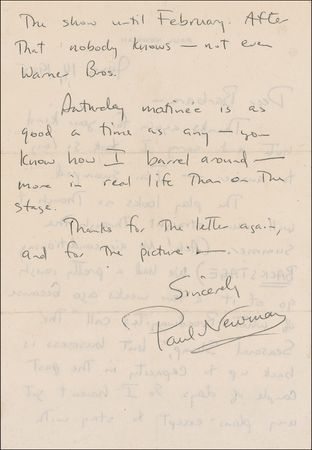 The show until February. After
That nobody knows — not even
Warner Bros.
Saturday matinee is as
good a time as any — you
know how I barrel around —
more in real life than on The
stage.
Thanks for The letter again,
and for The picture —.
Sincerely
Paul Newman